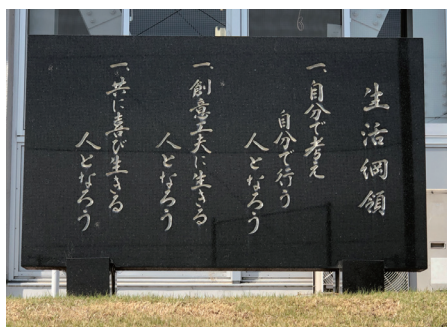 生活綱領
一、自分で考え
自分で行う
人となろう
一、創意工夫に生きる
人となろう
一、共に喜び生きる
人となろう